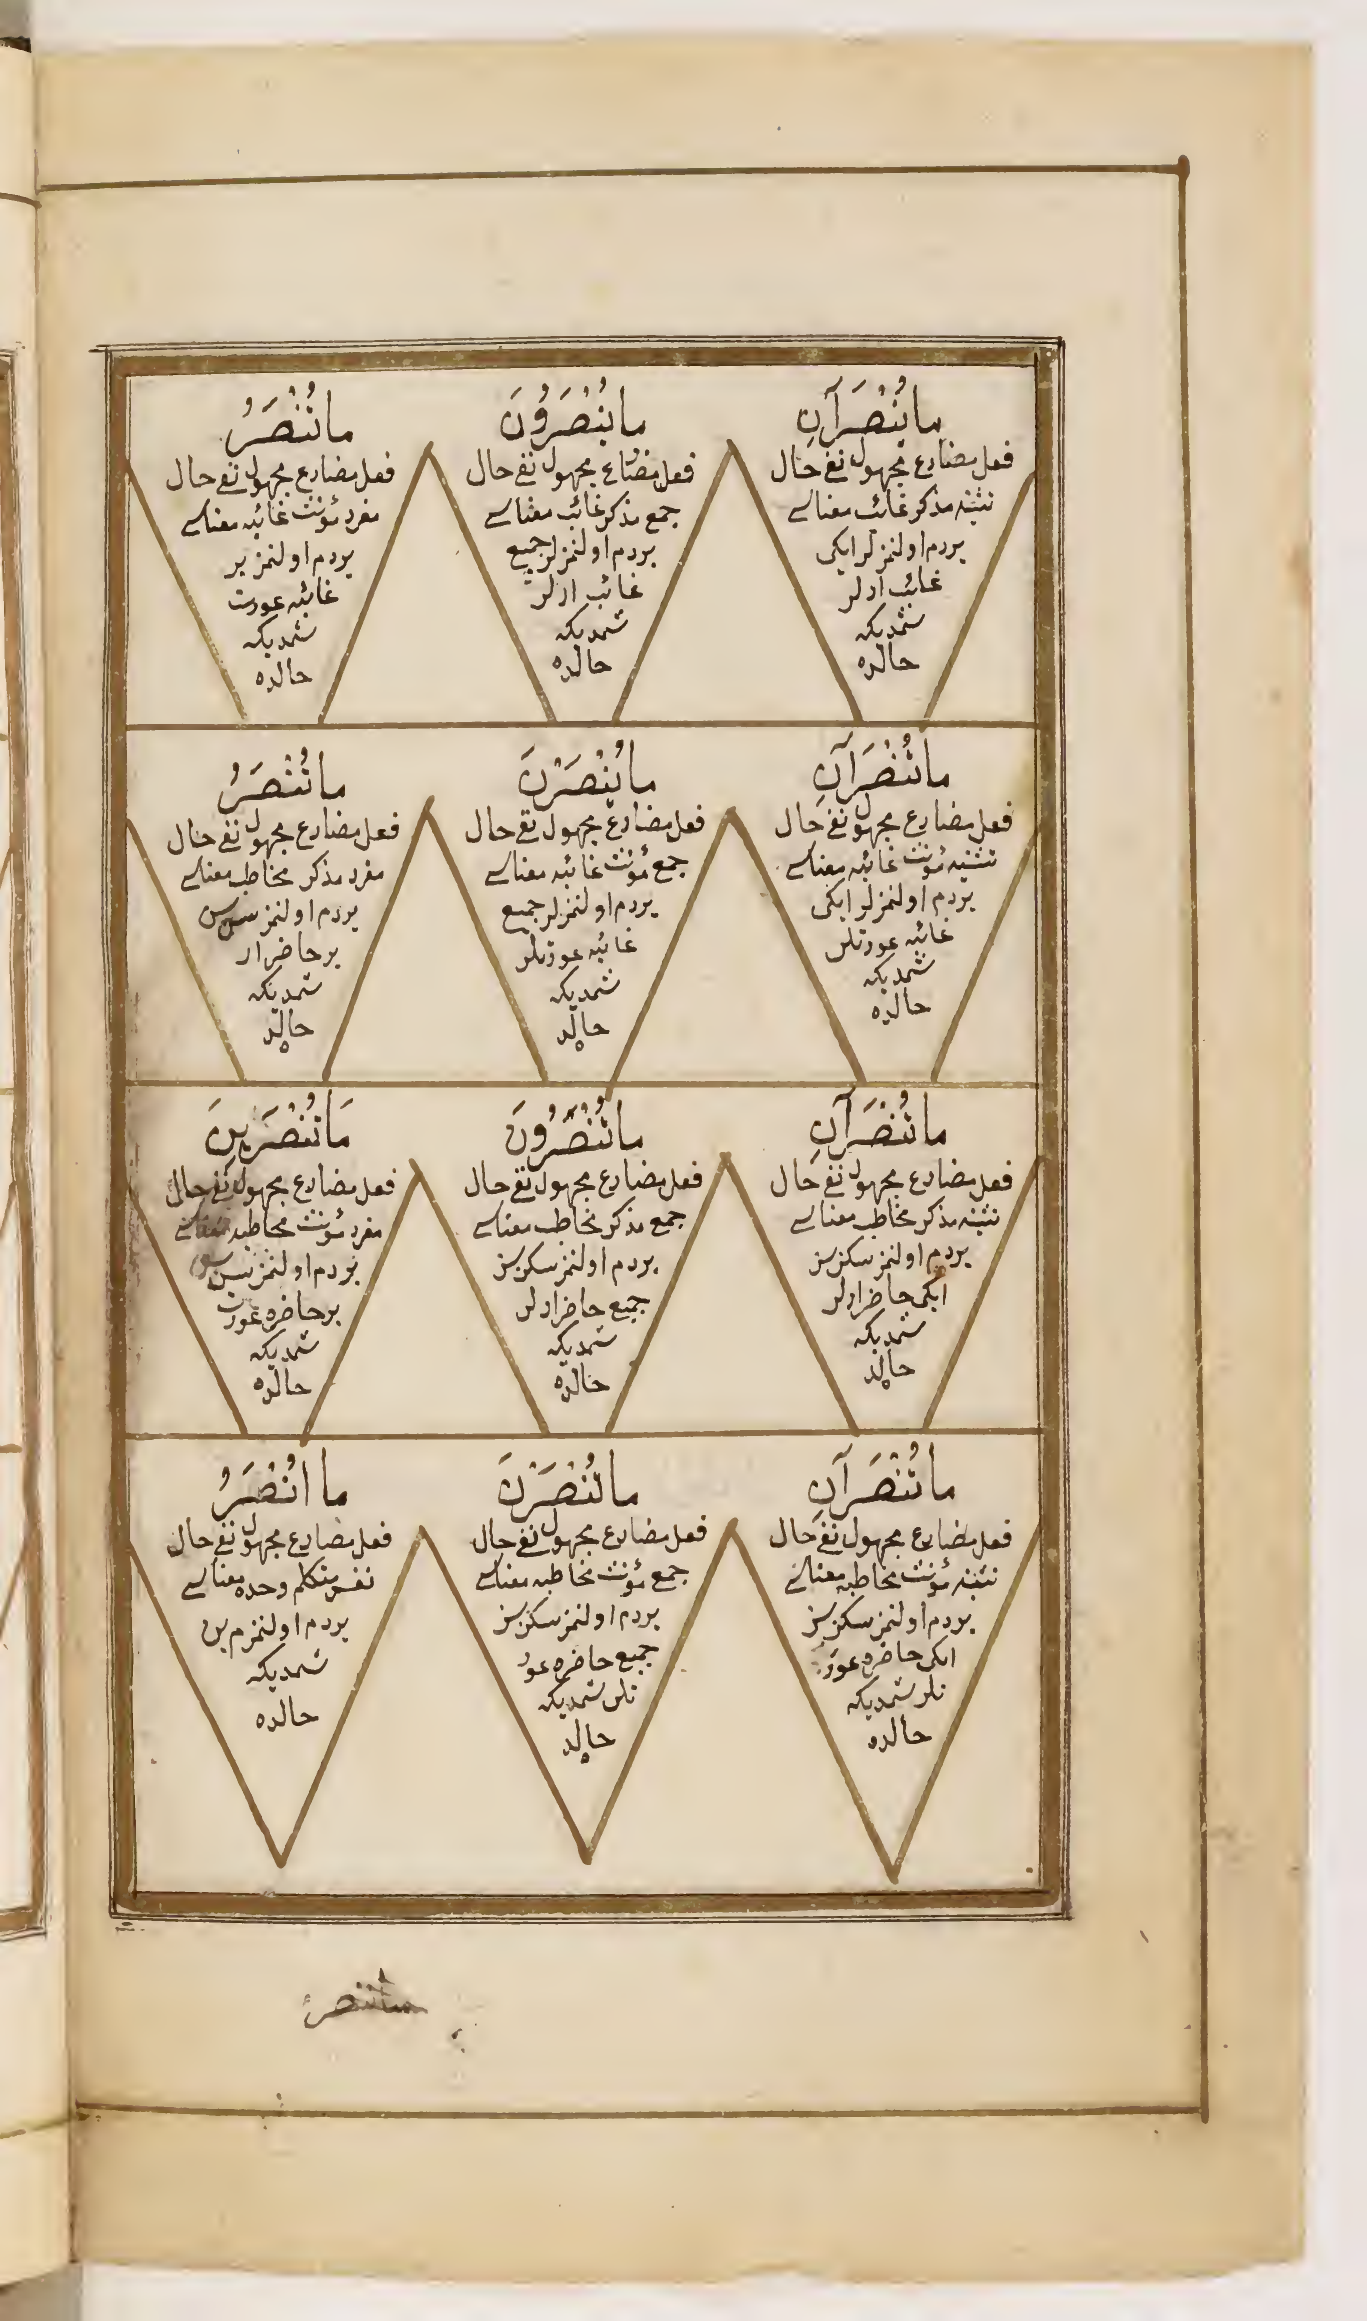 ما يُنْصَرَآنِ
فعل مضارع مجهول نفی حال
تثنیه مذکر غائب معناسی
یردم اولنمزلر ایکی
غائب ارلر
شمدیکه
حالده
ما يُنْصَرُونَ
فعل مضارع مجهول نفی حال
جمع مذکر غائب معناسی
یردم اولنمزلر جمیع
غائب ارلر
شمدیکه
حالده
ما تُنْصَرُ
فعل مضارع مجهول نفی حال
مفرد مؤنث غائبه معناسی
یردم اولنمز بر
غائبه عورت
شمدیکه
حالده
ما تُنْصَرَآنِ
فعل مضارع مجهول نفی حال
تثنیه مؤنث غائبه معناسی
یردم اولنمزلر ایکی
غائبه عورتلر
شمدیکه
حالده
ما يُنْصَرْنَ
فعل مضارع مجهول نفی حال
جمع مؤنث غائبه معناسی
یردم اولنمزلر جمیع
غائبه عورتلر
شمدیکه
حالده
ما تُنْصَرُ
فعل مضارع مجهول نفی حال
مفرد مذکر مخاطب معناسی
یردم اولنمز سن
بر حاضر ار
شمدیکه
حالده
ما تُنْصَرَآنِ
فعل مضارع مجهول نفی حال
تثنیه مذکر مخاطب معناسی
یردم اولنمز سکز سز
ایکی حاضر ارلر
شمدیکه
حالده
ما تُنْصَرُونَ
فعل مضارع مجهول نفی حال
جمع مذکر مخاطب معناسی
یردم اولنمز سکز سز
جمیع حاضر ارلر
شمدیکه
حالده
مَا تُنْصَرِينَ
فعل مضارع مجهول نفی حال
مفرد مؤنث مخاطبه معناسی
یردم اولنمز سن
بر حاضره عورت
شمدیکه
حالده
ما تُنْصَرَآنِ
فعل مضارع مجهول نفی حال
تثنیه مؤنث مخاطبه معناسی
یردم اولنمز سکز سز
ایکی حاضره عور
تلر شمدیکه
حالده
ما تُنْصَرْنَ
فعل مضارع مجهول نفی حال
جمع مؤنث مخاطبه معناسی
یردم اولنمز سکز سز
جمیع حاضره عور
تلر شمدیکه
حالده
ما اُنْصَرُ
فعل مضارع مجهول نفی حال
نفس متکلم وحده معناسی
یردم اولنمزم بن
شمدیکه
حالده
ما ننصر